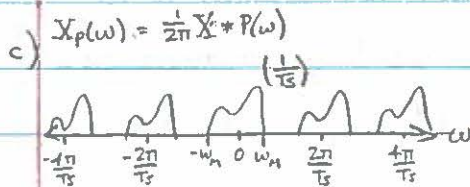 c) Xp(ω) = 1/2π X * P(ω)
(1/Ts)
-4π/Ts -2π/Ts -ωM 0 ωM 2π/Ts 4π/Ts ω